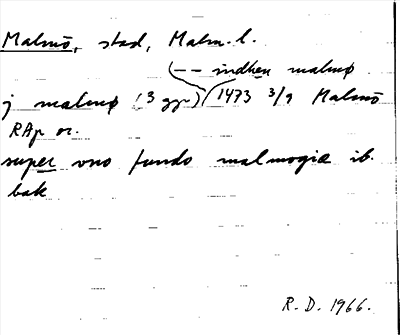 Malmö, stad, Malm. l.
(-- indhen malmø
j malmø (3 ggr) 1473 3/9 Malmö
RAp or.
super vno fundo malmogiæ ib.
bak
R. D. 1966.